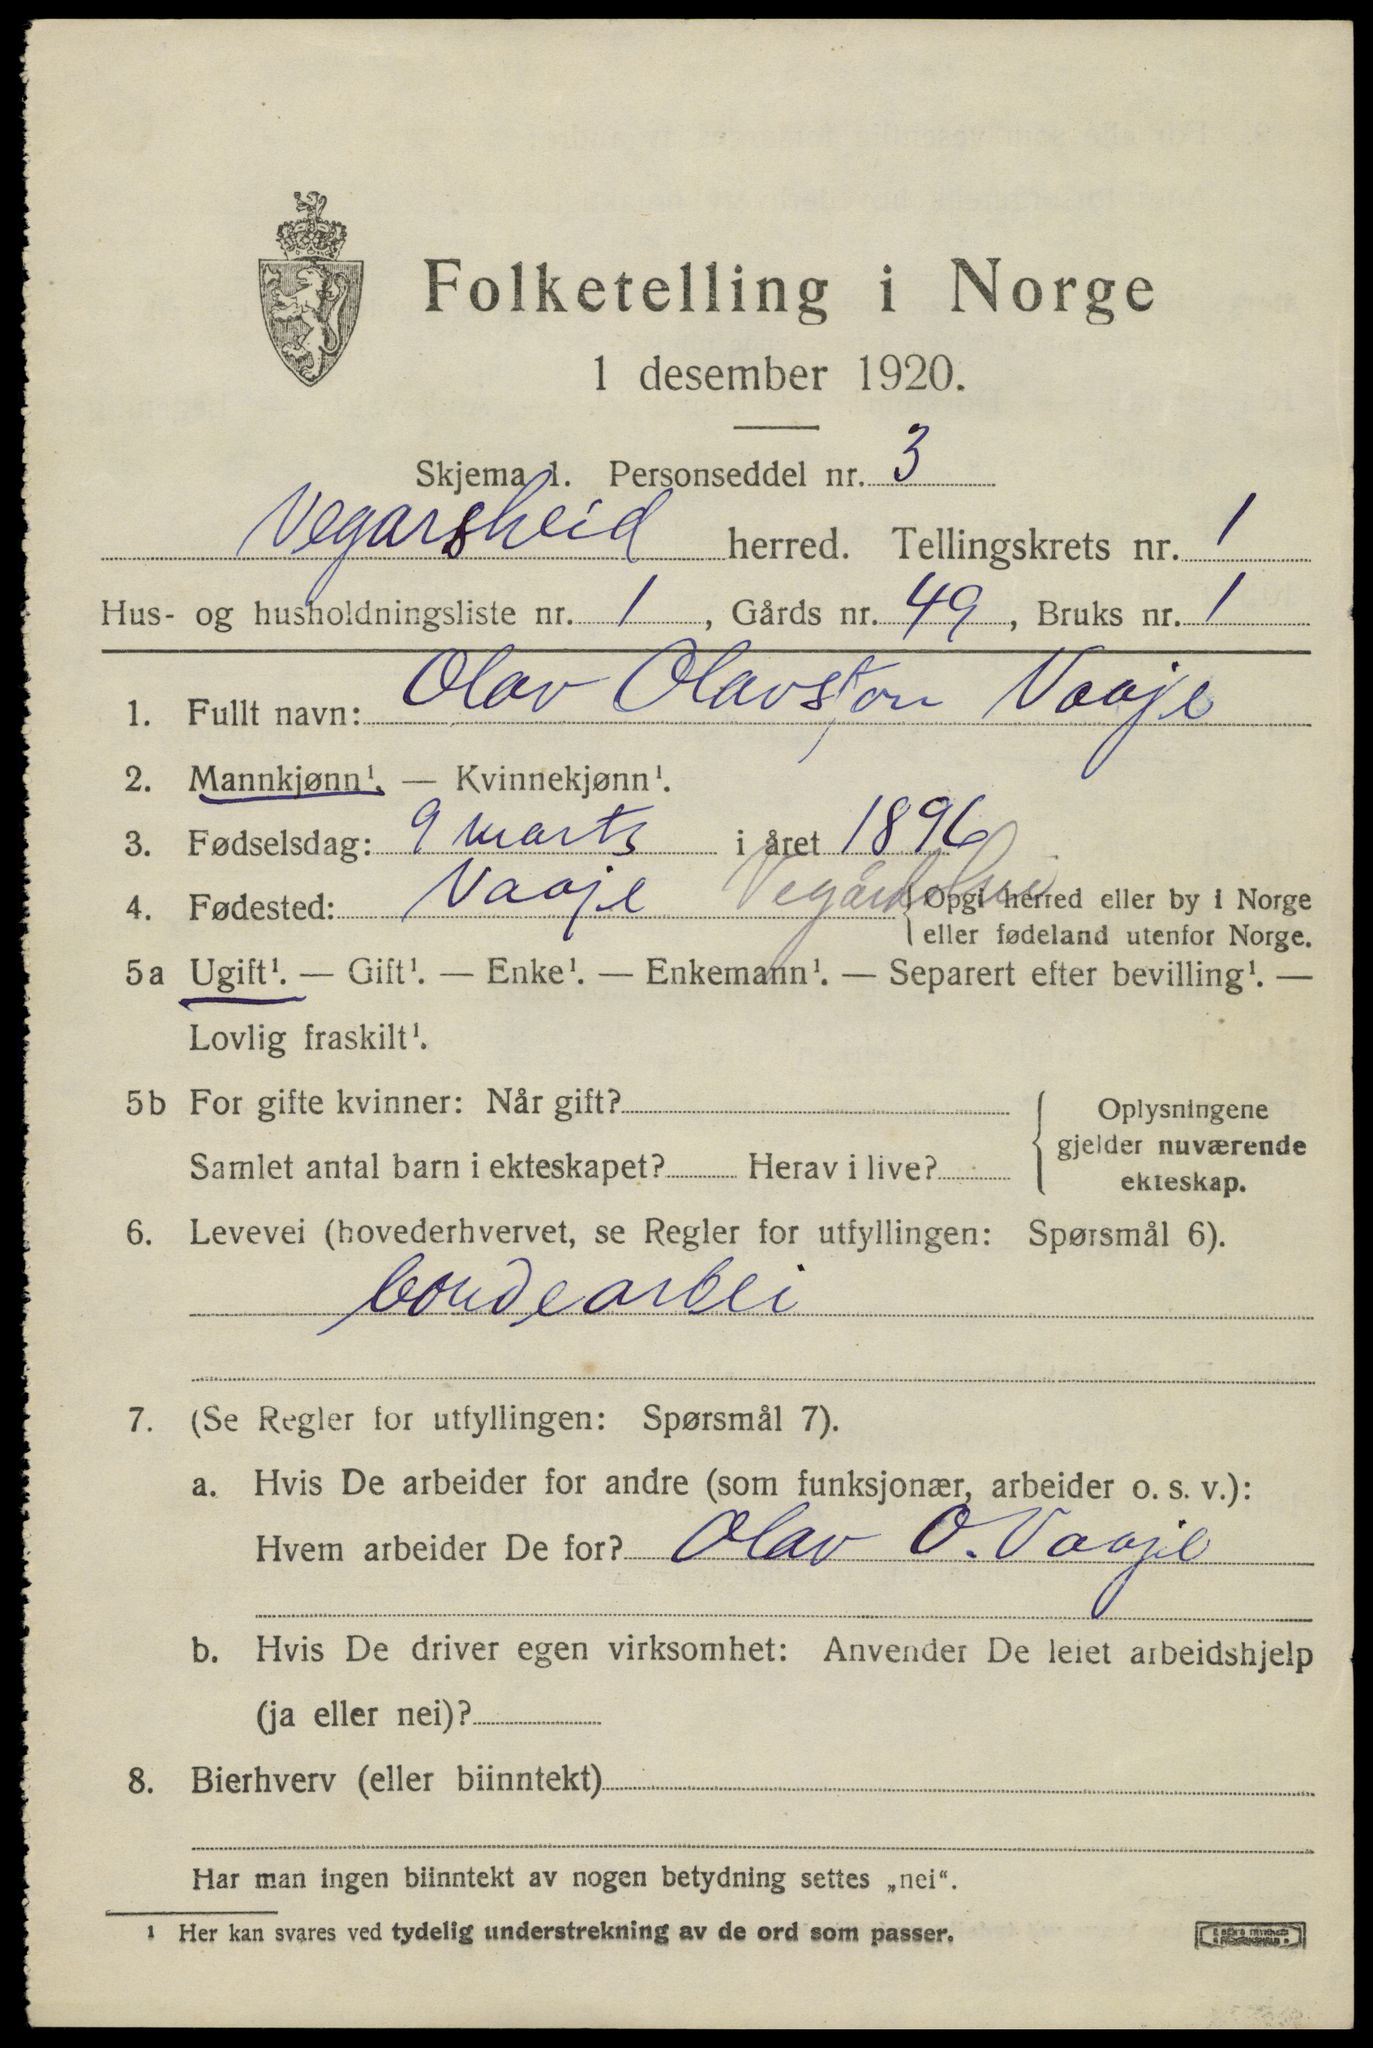 Folketelling i Norge
1 desember 1920.
Skjema 1. Personseddel nr. 3
Vegarsheid herred. Tellingskrets nr. 1
Hus- og husholdningsliste nr. 1, Gårds nr. 49, Bruks nr. 1
1. Fullt navn: Olav Olavsson Vaaje
2. Mannkjønn¹. — Kvinnekjønn¹.
3. Fødselsdag: 9 marts i året 1896
4. Fødested: Vaaje {Opgi herred eller by i Norge
eller fødeland utenfor Norge.
5a Ugift¹. — Gift¹. — Enke¹. — Enkemann¹. — Separert efter bevilling¹. —
Lovlig fraskilt¹.
5b For gifte kvinner: Når gift? Oplysningene
gjelder nuværende
Samlet antal barn i ekteskapet? Herav i live? ekteskap.
6. Levevei (hovederhvervet, se Regler for utfyllingen: Spørsmål 6).
bondearbei
7. (Se Regler for utfyllingen: Spørsmål 7).
a. Hvis De arbeider for andre (som funksjonær, arbeider o. s. v.):
Hvem arbeider De for? Olav O. Vaaje
b. Hvis De driver egen virksomhet: Anvender De leiet arbeidshjelp
(ja eller nei)?
8. Bierhverv (eller biinntekt)
Har man ingen biinntekt av nogen betydning settes „nei“.
1 Her kan svares ved tydelig understrekning av de ord som passer.